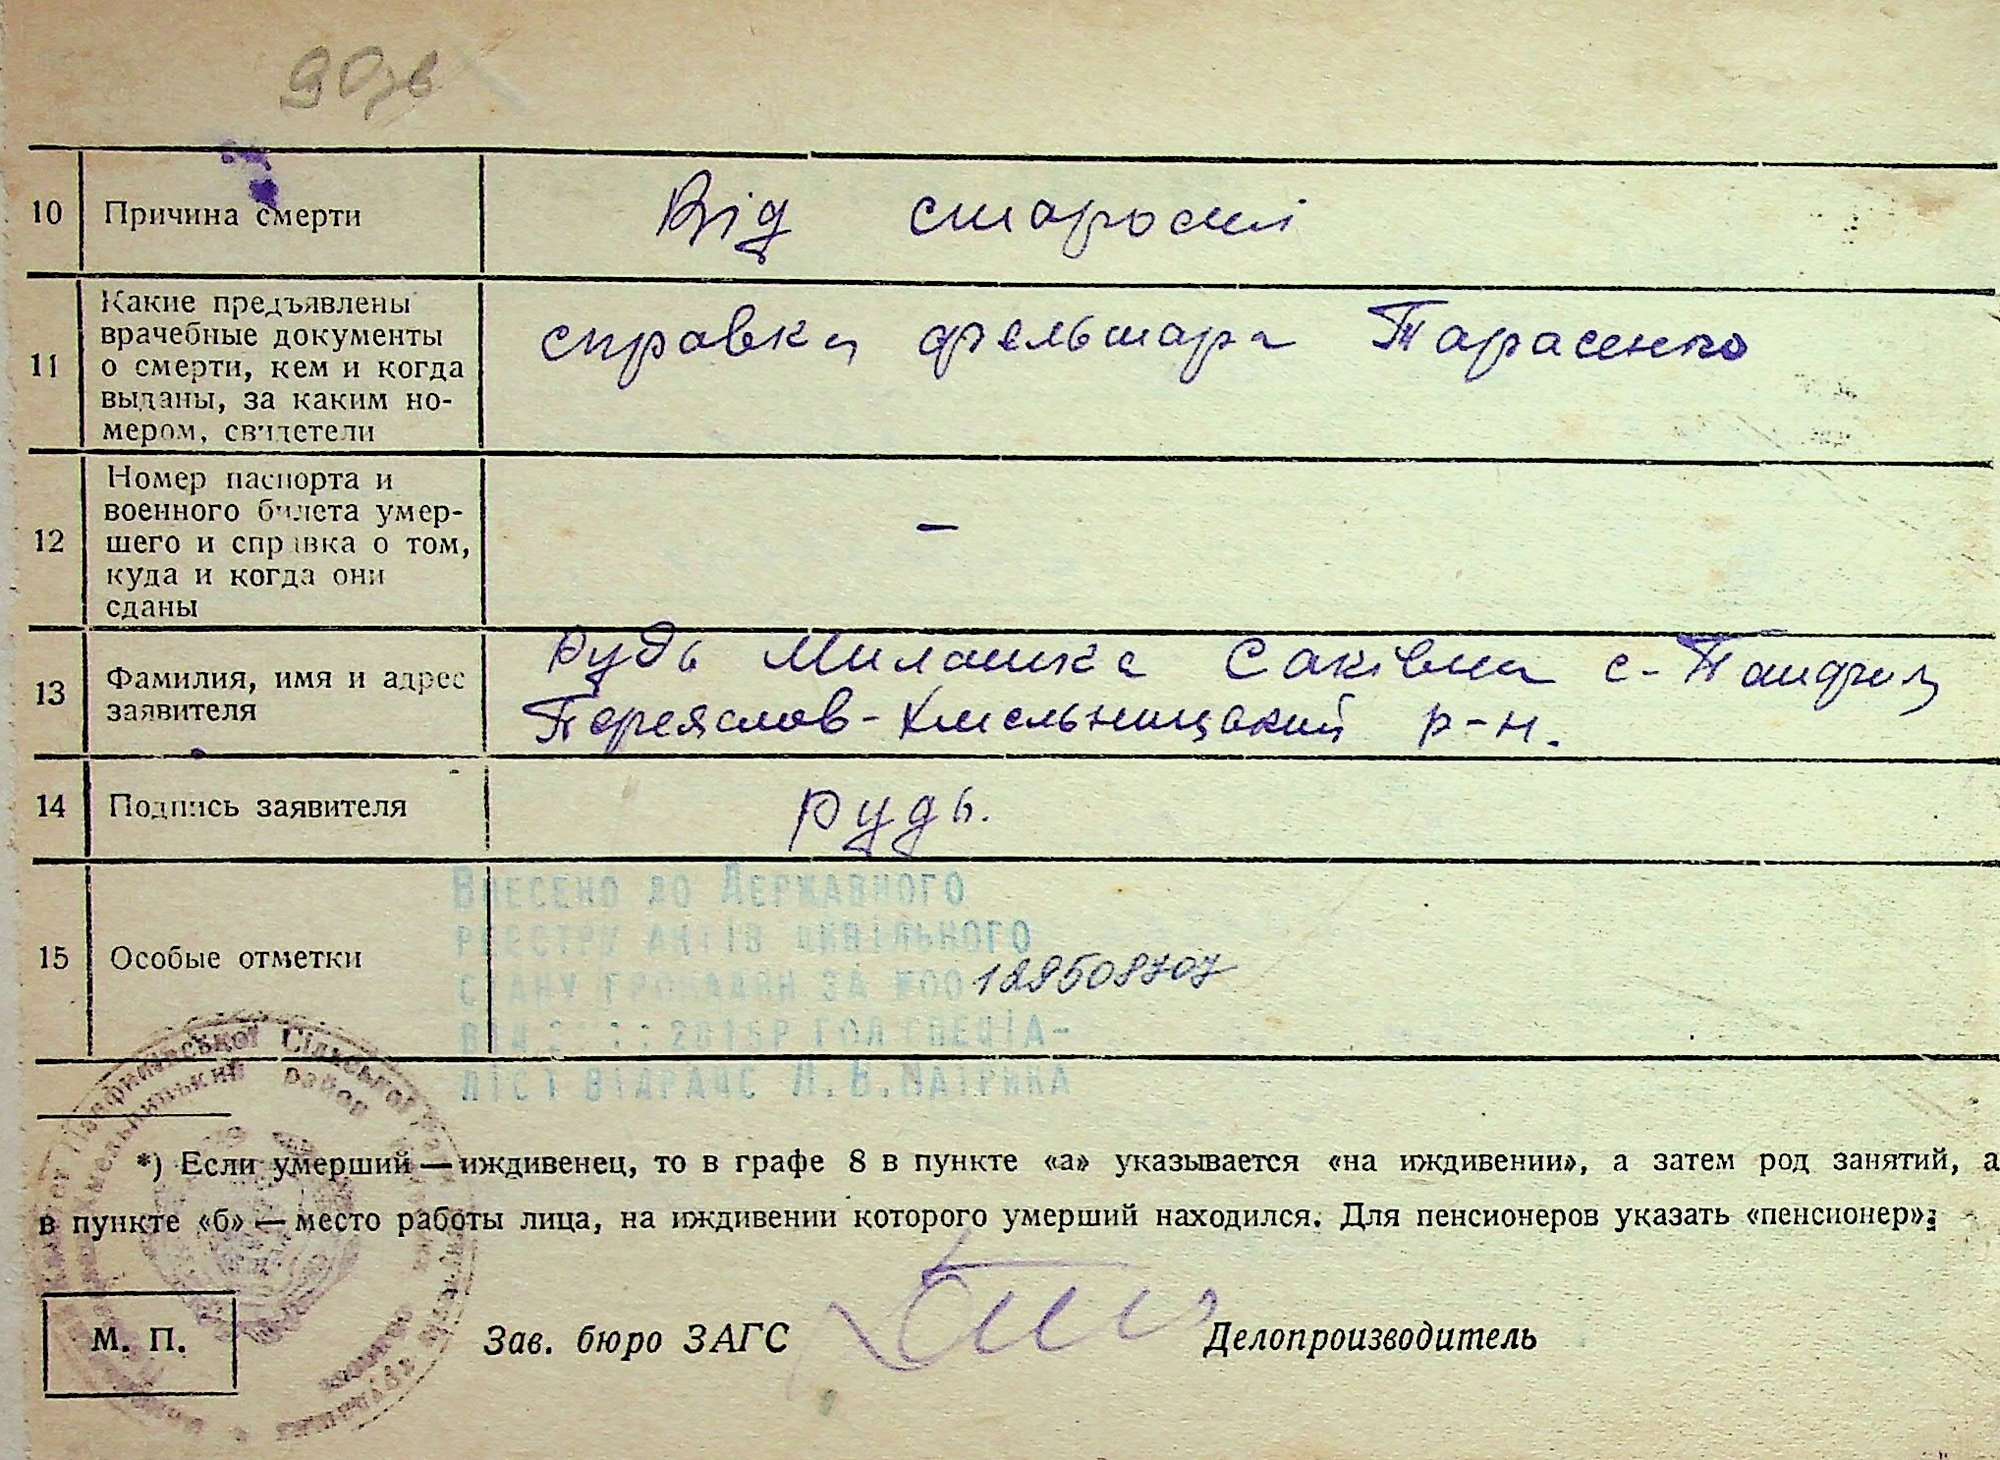 90зв
10 Причина смерти Від старості
11 Какие предъявлены
врачебные документы
о смерти, кем и когда
выданы, за каким но-
мером, свидетели
справка фельшара Тарасенко
12 Номер паспорта и
военного билета умер-
шего и справка о том,
куда и когда они
сданы
–
13 Фамилия, имя и адрес
заявителя
Рудь Милашка Саківна с-
Переяслов-Хмельницький р-н.
14 Подпись заявителя Рудь.
15 Особые отметки
Внесено до Державного
реєстру актів цивільного
стану громадян за №00 129508707
2015р гол. спеціа-
ліст відрацс
Сільської
район
*) Если умерший — иждивенец, то в графе 8 в пункте «а» указывается «на иждивении», а затем род занятий, а
в пункте «б» — место работы лица, на иждивении которого умерший находился. Для пенсионеров указать «пенсионер».
М. П. Зав. бюро ЗАГС Делопроизводитель